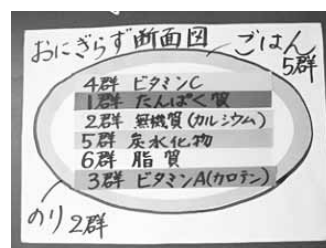 おにぎらず断面図
ごはん
5群
4群 ビタミンC
1群 たんぱく質
2群 無機質(カルシウム)
5群 炭水化物
6群 脂質
3群 ビタミンA(カロテン)
のり
2群